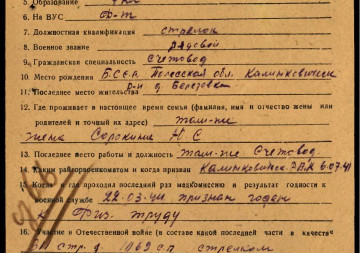 5. Образование 4 кл
6. На ВУС
7. Должностная квалификация стрелок
8. Военное звание рядовой
9. Гражданская специальность Счетовод
10. Место рождения БССР Полесская обл. Калинковичский
11. Последнее место жительства р-н д. Березовка
12. Где проживает в настоящее время семья (фамилия, имя и отчество жены или
родителей и точный их адрес) там-же
жена Сорокина Н. С
13. Последнее место работы и должность там-же Счетовод.
14. Каким райвоенкоматом и когда призван Калинковичск. РВК 6.07.41
15. Когда и где проходил последний раз медкомиссию и результат годности к
военной службе 22.03.44 признан годен
к Физ. труду
16. Участие в Отечественной войне (в составе какой последней части в качестве
стр. д. 1069 с.п стрелком